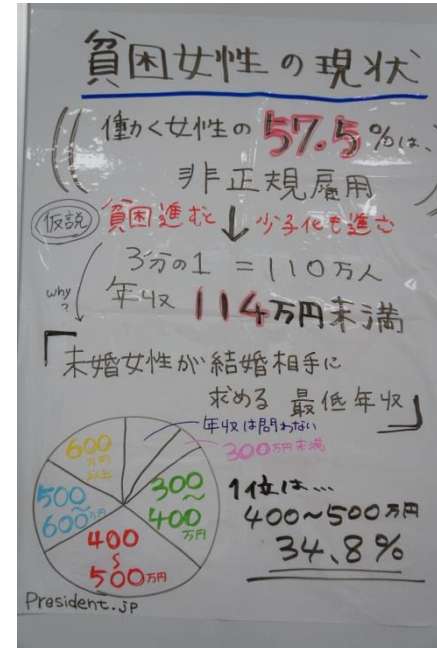 貧困女性の現状
働く女性の57.5%は、
非正規雇用
仮説 貧困進むと↓少子化も進む
3分の1 = 110万人
why?
年収 114万円未満
「未婚女性が結婚相手に
求める 最低年収」
年収は問わない
300万円未満
300〜400万円
400〜500万円
500〜600万円
600万円以上
1位は…
400〜500万円
34.8%
President.jp